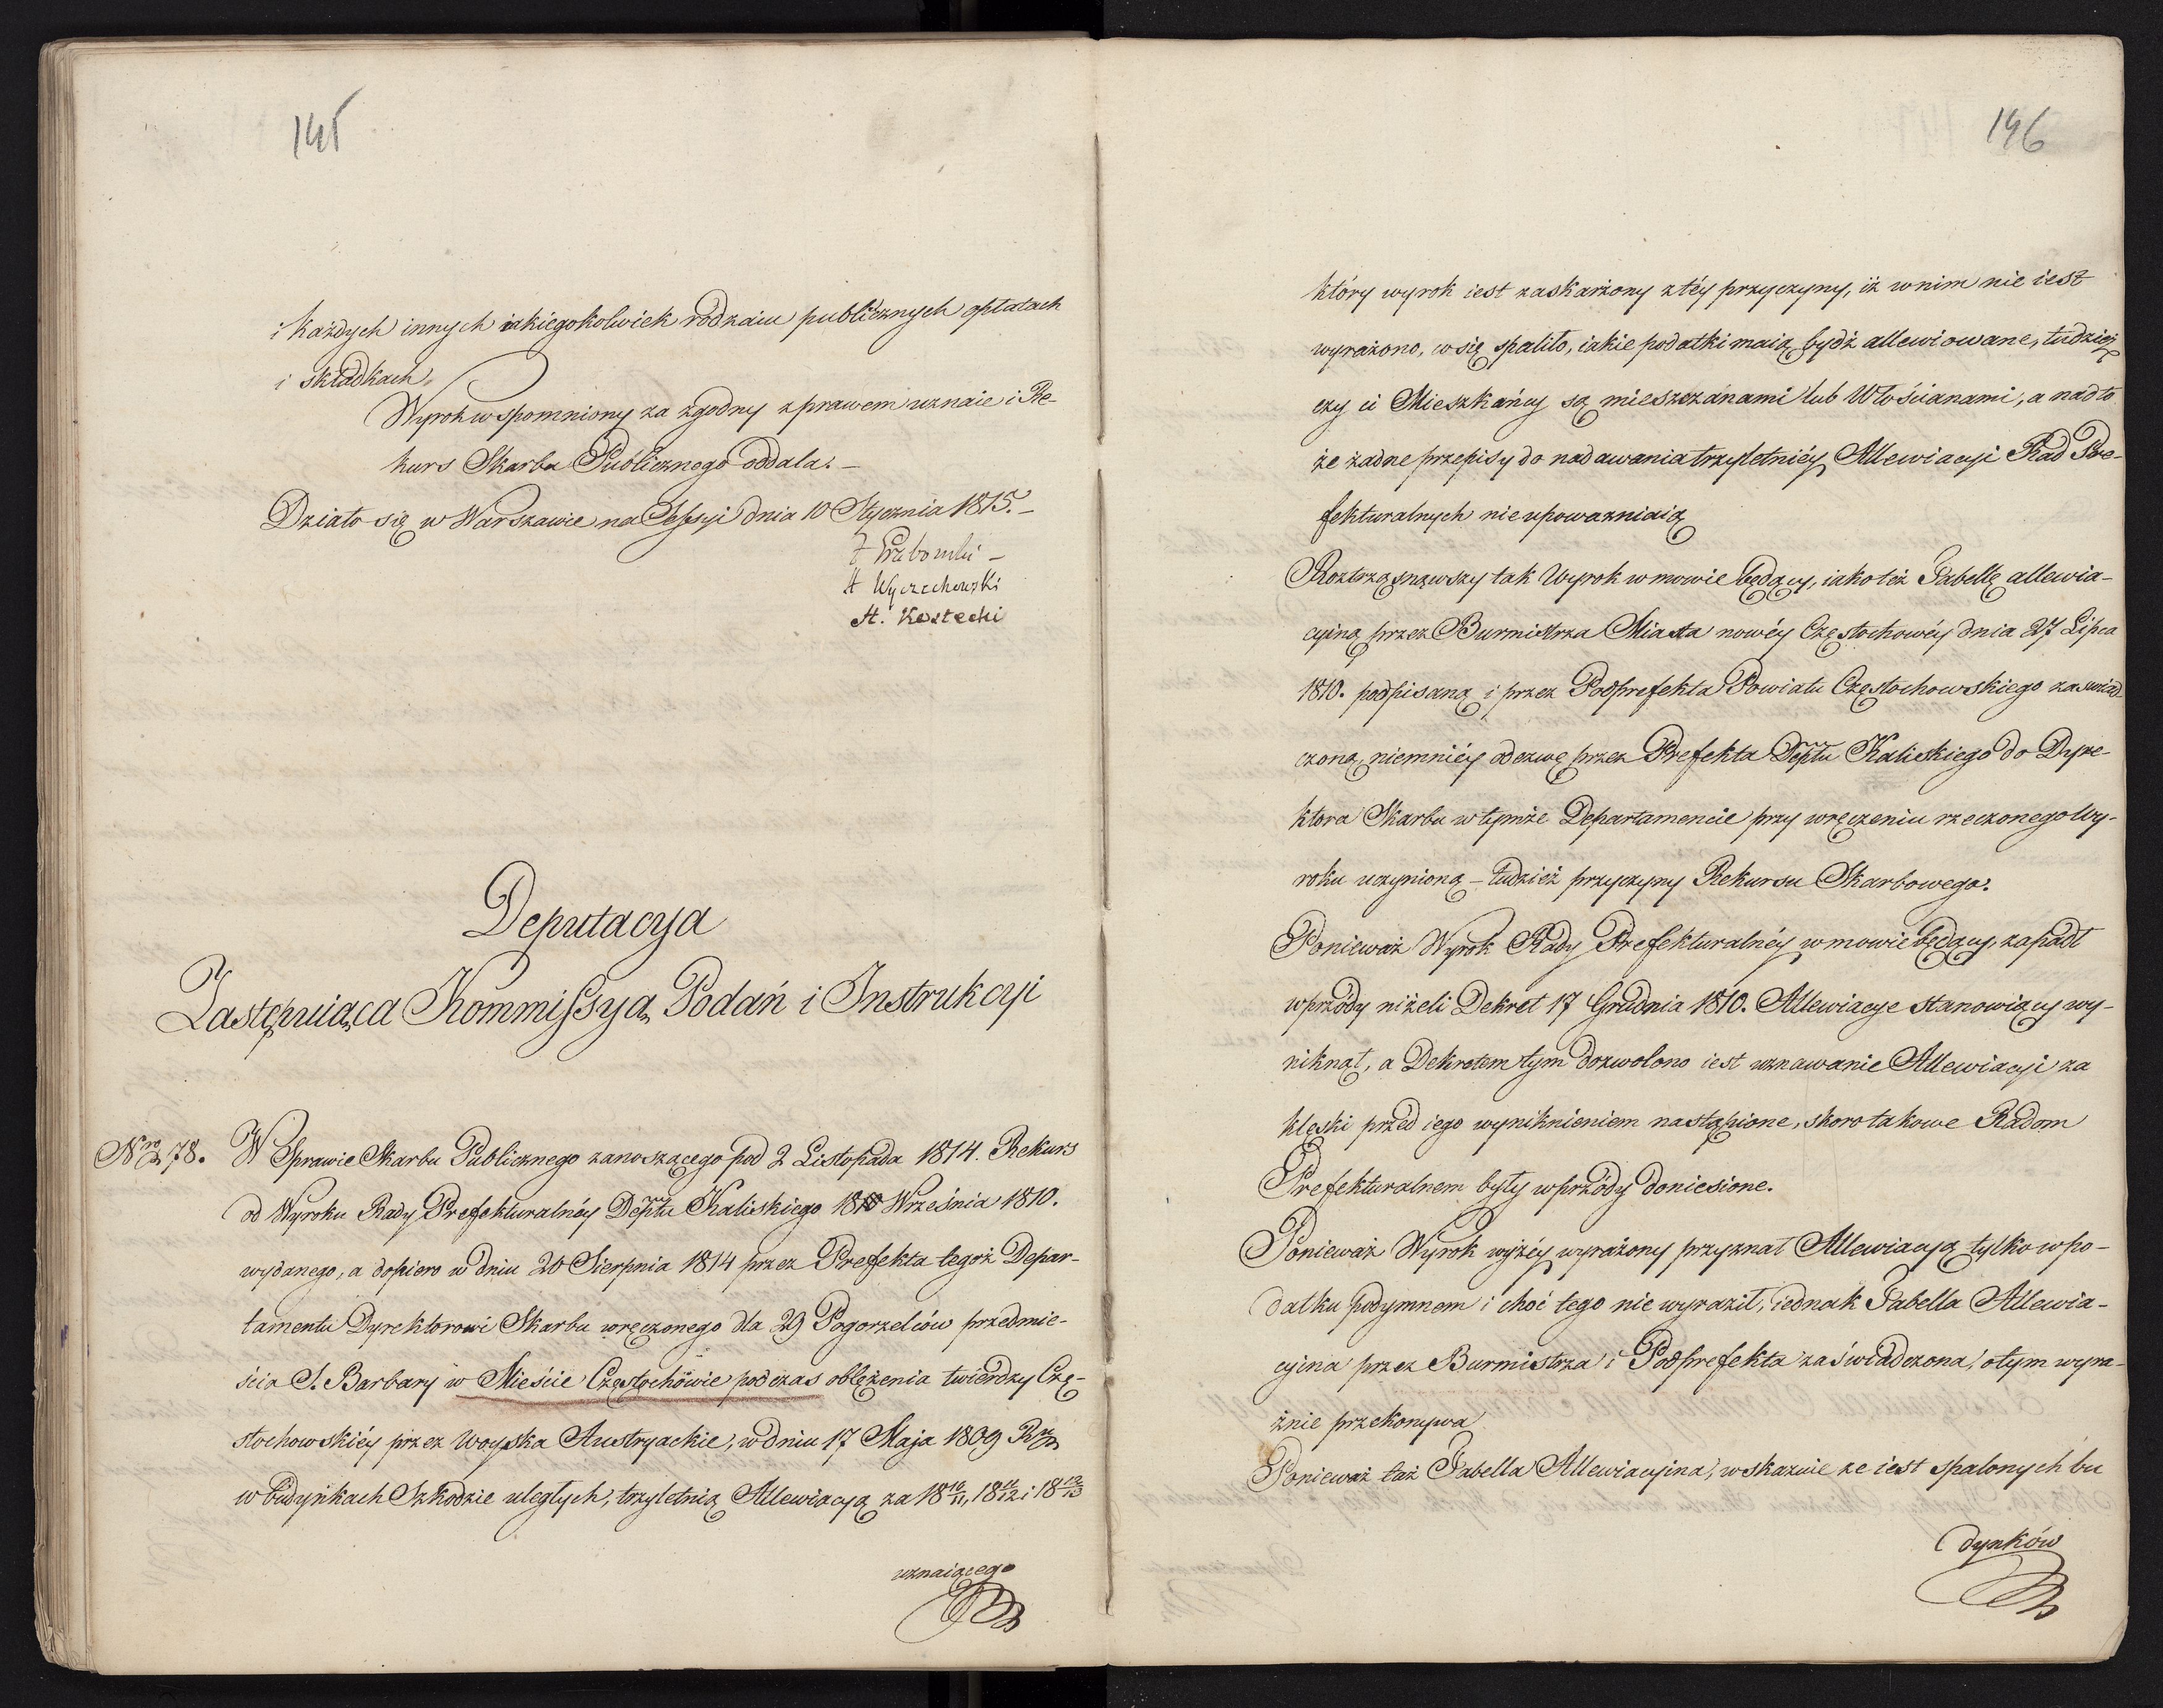 145
i każdych innych iakiegokolwiek rodzaiu publicznych opłatach
i składkach,
Wyrok wspomniony za zgodny z prawem uznaie i Re-
kurs Skarbu Publicznego oddala. –
Działo się w Warszawie na Sessyi dnia 10 Stycznia 1815. –
A Wyczechowski
A. Kostecki
Deputacya
Zastępuiąca Kommissyą Podań i Instrukcyi
Nro 78. W Sprawie Skarbu Publicznego zanoszącego pod 2 Listopada 1814. Rekurs
od Wyroku Rady Prefekturalnéy Deptu Kaliskiego 18 Września 1810.
wydanego, a dopiero w dniu 20 Sierpnia 1814 przez Prefekta tegoż Depar-
tamentu Dyrektorowi Skarbu wręczonego dla 29 Pogorzelców przedmie-
ścia S. Barbary w Mieście Częstochowie podczas oblężenia twierdzy Czę-
stochowskiéy przez woyska Austryackie, w dniu 17 Maja 1809 Rz
w budynkach Szkodzie uległych, trzyletnią Allewiacyą za 18 10/11, 18 11/12 i 18 12/13
uznaiącego
146
który wyrok iest zaskarżony z téy przyczyny, iż w nim nie iest
wyrażono, co się spaliło, iakie podatki maią bydź allewiowane, tudzież
czy ci Mieszkańcy są mieszczanami lub Włościanami, a nadto
że żadne przepisy do nadawania trzyletniéy Allewiacyi Rad Pre-
fekturalnych nie upowazniaią
Roztrząsnąwszy tak Wyrok w mowie będący, iako też Tabellę allewia-
cyiną przez Burmistrza Miasta nowéy Częstochowéy dnia 27 Lipca
1810. podpisaną i przez Podprefekta Powiatu Częstochowskiego zaswiad-
czoną, niemniéy odezwę przez Prefekta Deptu Kaliskiego do Dyre-
ktora Skarbu w tymże Departamencie przy wręczeniu rzeczonego Wy-
roku uczynioną – tudzież przyczyny Rekursu Skarbowego.
Ponieważ Wyrok Rady Prefekturalnéy w mowie będący, zapadł
wprzódy niżeli Dekret 17 Grudnia 1810. Allewiacye stanowiący wy-
niknął, a Dekretem tym dozwolono iest uznawanie Allewiacyi za
klęski przed iego wyniknieniem nastąpione, skoro takowe Radom
Prefekturalnem były wprzódy doniesione.
Ponieważ Wyrok wyżéy wyrażony przyznał Allewiacyą tylko w po-
datku podymnem i choć tego nie wyraził, iednak Tabella Allewia-
cyina przez Burmistrza i Podprefekta zaświadczona, o tym wyra-
źnie przekonywa
Ponieważ taż Tabella Allewiacyina, wskazuie ze iest spalonych bu
dynków